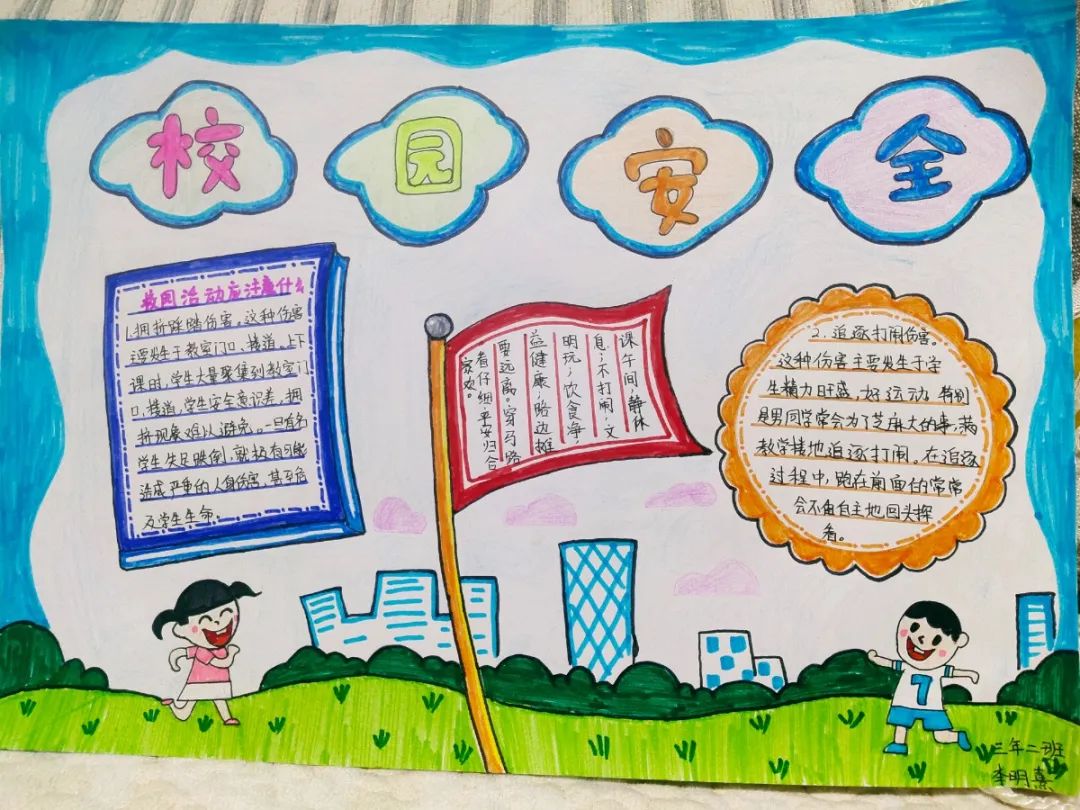 校园安全
校园活动应注意什么
1.拥挤踩踏伤害。这种伤害
主要发生于教室门口、楼道。上下
课时,学生大量聚集到教室门
口、楼道,学生安全意识差,拥
挤现象难以避免。一旦有名
学生失足跌倒,就极有可能
造成严重的人身伤害,甚至危
及学生生命。
课午间,静休
息;不打闹,文
明玩,饮食净
益健康,路边摊
要远离。穿马路
看仔细,平安归合
家欢。
2.追逐打闹伤害。
这种伤害主要发生于学
生精力旺盛、好运动,特别
是男同学常会为了芝麻大的事,满
教学楼地追逐打闹。在追逐
过程中,跑在前面的常常
会不由自主地回头探
看。
7
三年二班
李明熹